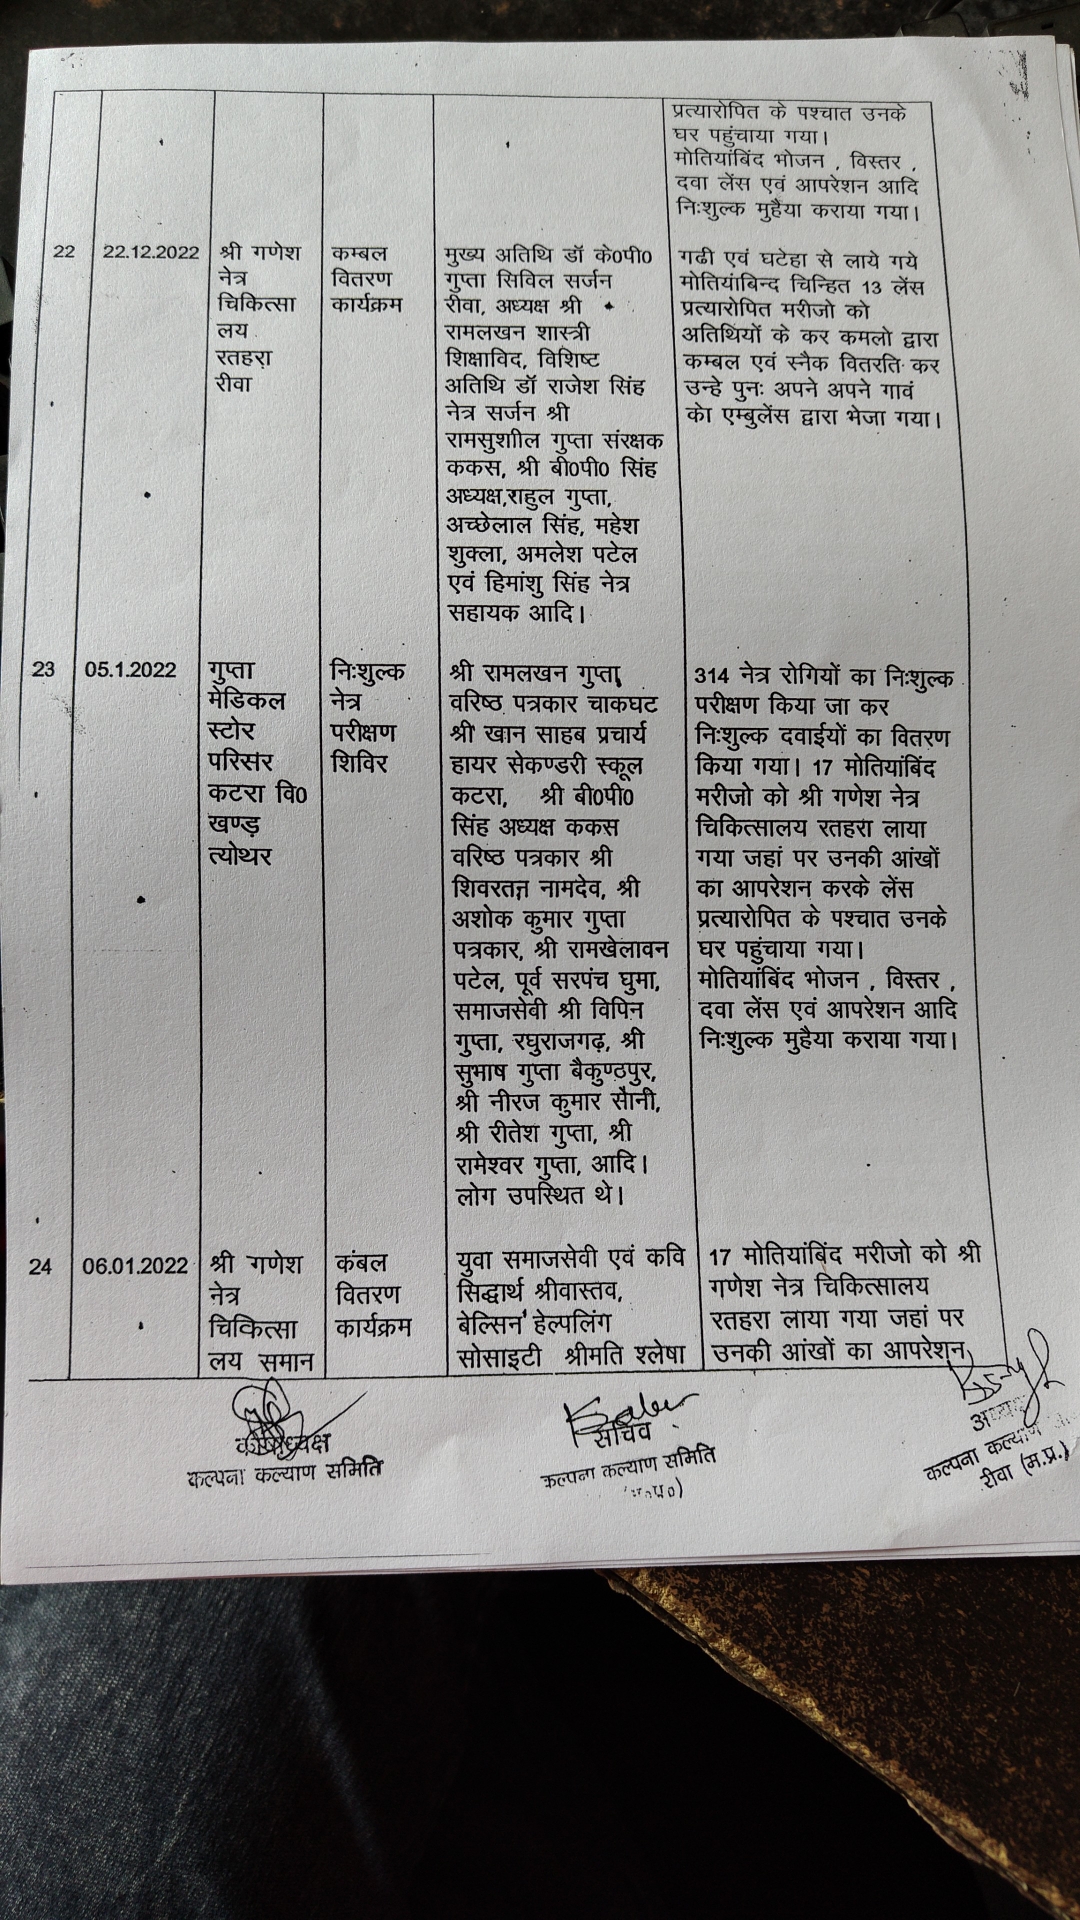 प्रत्यारोपित के पश्चात उनके
घर पहुंचाया गया।
मोतियांबिंद भोजन , विस्तर ,
दवा लेंस एवं आपरेशन आदि
निःशुल्क मुहैया कराया गया।
22
22.12.2022
श्री गणेश
नेत्र
चिकित्सा
लय
रतहरा
रीवा
कम्बल
वितरण
कार्यक्रम
मुख्य अतिथि डॉ के0पी0
गुप्ता सिविल सर्जन
रीवा, अध्यक्ष श्री
रामलखन शास्त्री
शिक्षाविद, विशिष्ट
अतिथि डॉ राजेश सिंह
नेत्र सर्जन श्री
रामसुशाील गुप्ता संरक्षक
ककस, श्री बी0पी0 सिंह
अध्यक्ष,राहुल गुप्ता,
अच्छेलाल सिंह, महेश
शुक्ला, अमलेश पटेल
एवं हिमांशु सिंह नेत्र
सहायक आदि।
गढी एवं घटेहा से लाये गये
मोतियांबिन्द चिन्हित 13 लेंस
प्रत्यारोपित मरीजो को
अतिथियों के कर कमलो द्वारा
कम्बल एवं स्नैक वितरति कर
उन्हे पुनः अपने अपने गावं
केा एम्बुलेंस द्वारा भेजा गया।
23
05.1.2022
गुप्ता
मेडिकल
स्टोर
परिसर
कटरा वि0
खण्ड़
त्योथर
निःशुल्क
नेत्र
परीक्षण
शिविर
श्री रामलखन गुप्ता,
वरिष्ठ पत्रकार चाकघट
श्री खान साहब प्रचार्य
हायर सेकण्डरी स्कूल
कटरा, श्री बी0पी0
सिंह अध्यक्ष ककस
वरिष्ठ पत्रकार श्री
शिवरतन नामदेव, श्री
अशोक कुमार गुप्ता
पत्रकार, श्री रामखेलावन
पटेल, पूर्व सरपंच घुमा,
समाजसेवी श्री विपिन
गुप्ता, रघुराजगढ़, श्री
सुभाष गुप्ता बैकुण्ठपुर,
श्री नीरज कुमार सेानी,
श्री रीतेश गुप्ता, श्री
रामेश्वर गुप्ता, आदि।
लोग उपस्थित थे।
314 नेत्र रोगियों का निःशुल्क
परीक्षण किया जा कर
निःशुल्क दवाईयों का वितरण
किया गया। 17 मोतियांबिंद
मरीजो को श्री गणेश नेत्र
चिकित्सालय रतहरा लाया
गया जहां पर उनकी आंखों
का आपरेशन करके लेंस
प्रत्यारोपित के पश्चात उनके
घर पहुंचाया गया।
मोतियांबिंद भोजन , विस्तर ,
दवा लेंस एवं आपरेशन आदि
निःशुल्क मुहैया कराया गया।
24
06.01.2022
श्री गणेश
नेत्र
चिकित्सा
लय समान
कंबल
वितरण
कार्यक्रम
युवा समाजसेवी एवं कवि
सिद्धार्थ श्रीवास्तव,
बेल्सिन हेल्पलिंग
सोसाइटी श्रीमति श्लेषा
17 मोतियांबिंद मरीजो को श्री
गणेश नेत्र चिकित्सालय
रतहरा लाया गया जहां पर
उनकी आंखों का आपरेशन
कोषाध्यक्ष
कल्पना कल्याण समिति
सचिव
कल्पना कल्याण समिति
अध्यक्ष
कल्पना कल्याण
रीवा (म.प्र.)